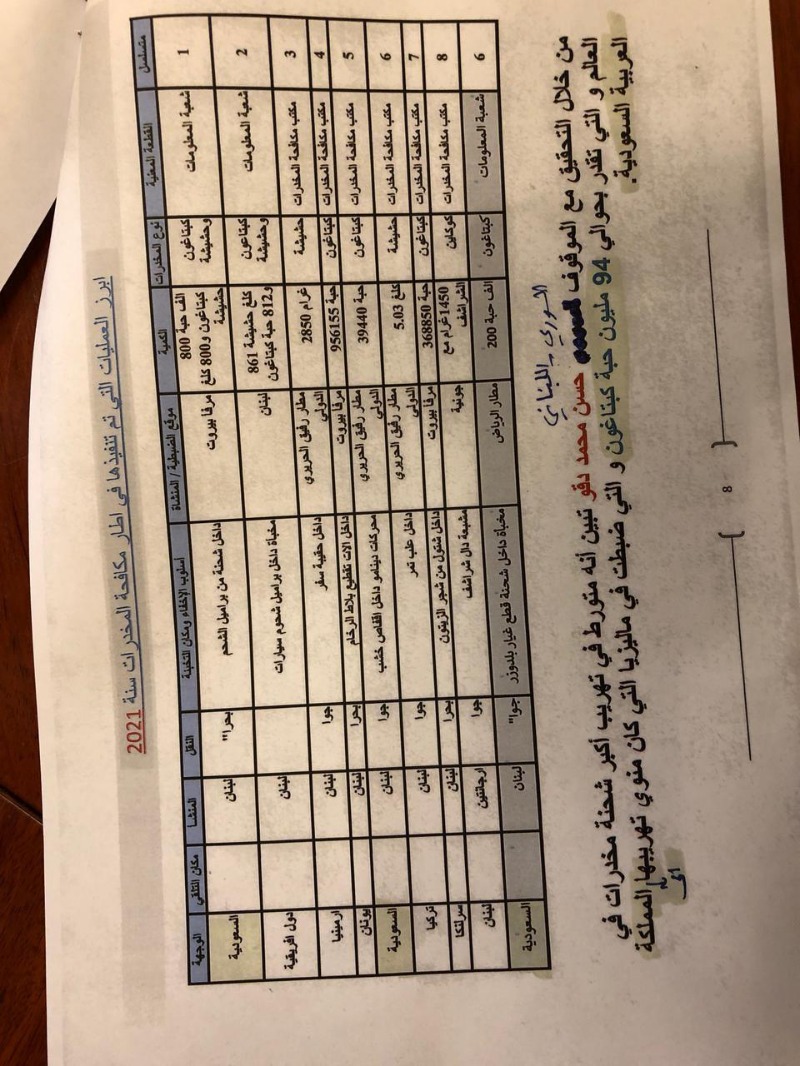 ابرز العمليات التي تم تنفيذها في اطار مكافحة المخدرات سنة 2021
متسلسل القطعة المعنية نوع المخدرات الكمية موقع الضبطية / المنشأة اسلوب الإخفاء ومكان التخبئة النقل المنشأ مكان التلقي الوجهة
1 شعبة المعلومات كبتاغون وحشيشة 800 الف حبة كبتاغون و800 كلغ حشيشة مرفا بيروت داخل شحنة من براميل الشحم بحرا" لبنان السعودية
2 شعبة المعلومات كبتاغون وحشيشة 861 كلغ حشيشة و812 حبة كبتاغون لبنان مخبأة داخل براميل شحوم سيارات لبنان دول افريقية
3 مكتب مكافحة المخدرات حشيشة 2850 غرام مطار رفيق الحريري الدولي داخل حقيبة سفر جوا لبنان ارمينيا
4 مكتب مكافحة المخدرات كبتاغون 956155 حبة مرفا بيروت داخل الات تقطيع بلاط الرخام بحرا لبنان يونان
5 مكتب مكافحة المخدرات كبتاغون 39440 حبة مطار رفيق الحريري الدولي محركات دينامو داخل اقفاص خشب جوا لبنان السعودية
6 مكتب مكافحة المخدرات حشيشة 5.03 كلغ مطار رفيق الحريري الدولي داخل علب تمر جوا لبنان تركيا
7 مكتب مكافحة المخدرات كبتاغون 368850 حبة مرفا بيروت داخل شتول من شجر الزيتون بحرا لبنان
8 مكتب مكافحة المخدرات كوكايين 1450غرام مع الشراشف جونية مشبعة دال شراشف جوا ارجانتين لبنان
6 شعبة المعلومات كبتاغون 200 الف حبة مطار الرياض مخبأة داخل شحنة قطع غيار بلدوزر جوا" لبنان السعودية
السوري - اللبناني
من خلال التحقيق مع الموقوف حسن محمد دقو تبين أنه متورط في تهريب أكبر شحنة مخدرات في
العالم و التي تقدر بحوالي 94 مليون حبة كبتاغون و التي ضبطت في ماليزيا التي كان منوي تهريبها المملكة
الى
العربية السعودية.
8